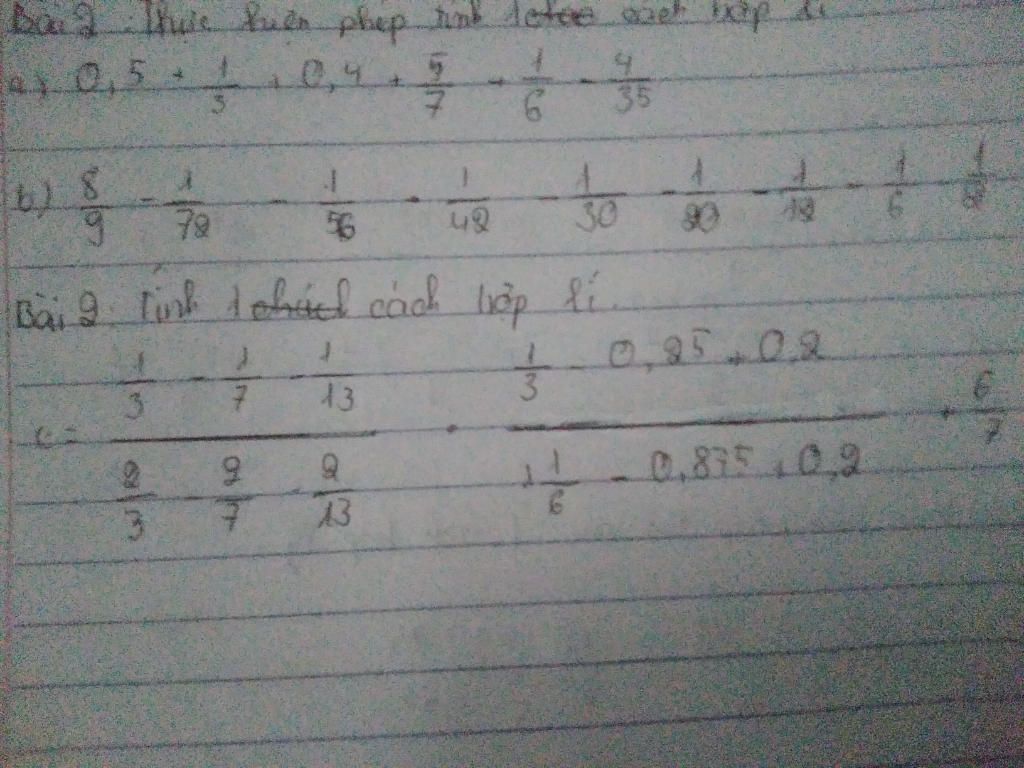 Bài 2: Thực hiện phép tính 1 cách hợp lí
a) 0,5 + 1/3 + 0,4 + 5/7 + 1/6 - 4/35
b) 8/9 - 1/72 - 1/56 - 1/42 - 1/30 - 1/20 - 1/12 - 1/6 - 1/2
Bài 2: Tính 1 cách hợp lí.
1/3 - 1/7 - 1/13 1/3 - 0,25 + 0,2
c = . + 6/7
2/3 - 2/7 - 2/13 1 1/6 - 0,875 + 0,2